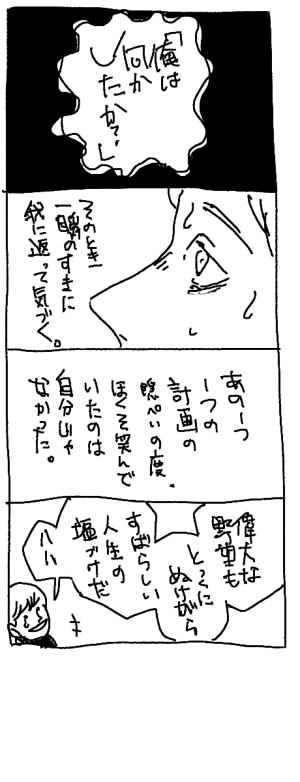 「俺は
何か
したか?」
そのとき
一瞬のすきに
我に返って気づく。
あの一つ
一つの
計画の
隠ぺいの度、
ほくそ笑んで
いたのは
自分じゃ
なかった。
偉大な
野望も
ところに
ぬけがら
すばらしい
人生の
塩づけだ
ハハ